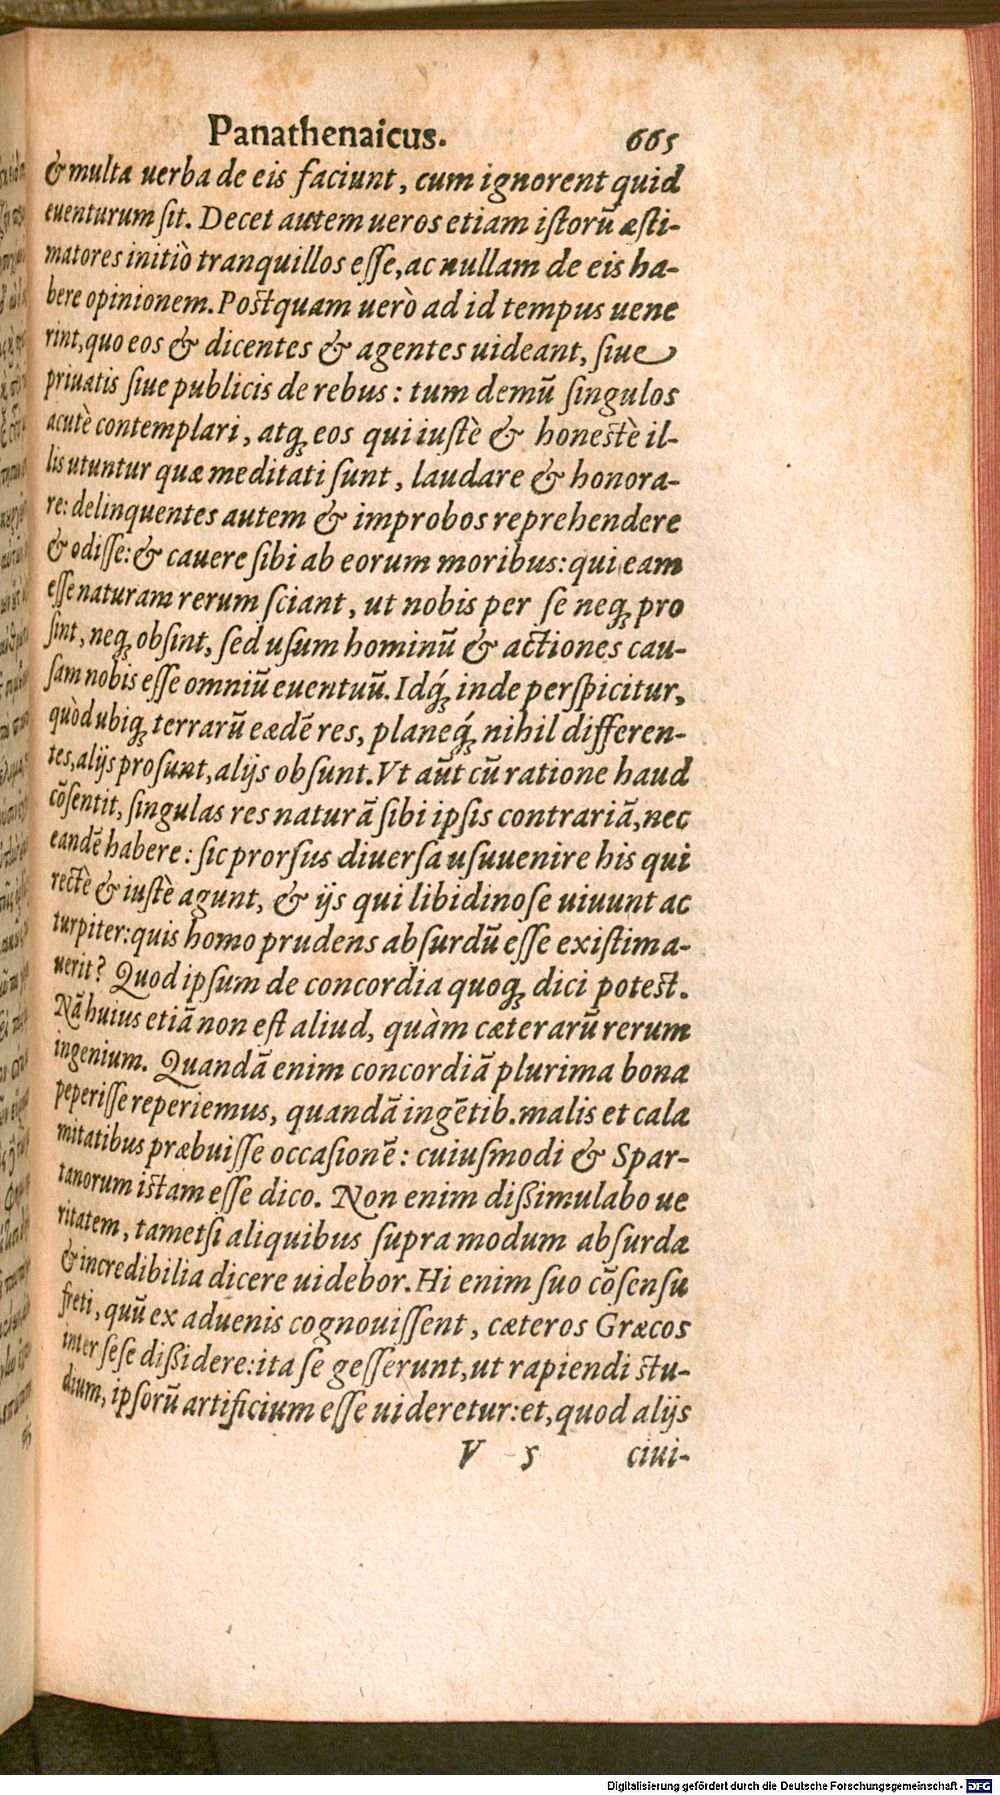 Panathenaicus. 665
& multa uerba de eis faciunt, cum ignorent quid
euenturum ſit. Decet autem ueros etiam iſtorũ æſti-
matores initiò tranquillos eſſe, ac nullam de eis ha-
bere opinionem. Poſtquam uerò ad id tempus uene
rint, quo eos & dicentes & agentes uideant, ſiue
priuatis ſiue publicis de rebus: tum demũ ſingulos
acutè contemplari, atqꝫ eos qui iuſtè & honeſtè il-
lis utuntur quæ meditati ſunt, laudare & honora-
re: delinquentes autem & improbos reprehendere
& odiſſe: & cauere ſibi ab eorum moribus: qui eam
eſſe naturam rerum ſciant, ut nobis per ſe neqꝫ pro
ſint, neqꝫ obſint, ſed uſum hominũ & actiones cau-
ſam nobis eſſe omniũ euentuũ. Idq́ꝫ inde perſpicitur,
quòd ubiqꝫ terrarũ eædẽ res, planeq́ꝫ nihil differen-
tes, alijs proſunt, alijs obſunt. Vt aũt cũ ratione haud
cõſentit, ſingulas res naturã ſibi ipſis contrariã, nec
eandẽ habere: ſic prorſus diuerſa uſuuenire his qui
rectè & iuſtè agunt, & ijs qui libidinoſe uiuunt ac
turpiter: quis homo prudens abſurdũ eſſe exiſtima-
uerit? Quod ipſum de concordia quoqꝫ dici poteſt.
Nã huius etiã non eſt aliud, quàm cæterarũ rerum
ingenium. Quandã enim concordiã plurima bona
peperiſſe reperiemus, quandã ingẽtib. malis et cala
mitatibus præbuiſſe occaſionẽ: cuiuſmodi & Spar-
tanorum iſtam eſſe dico. Non enim dißimulabo ue
ritatem, tametſi aliquibus ſupra modum abſurda
& incredibilia dicere uidebor. Hi enim ſuo cõſenſu
freti, quũ ex aduenis cognouiſſent, cæteros Græcos
inter ſeſe dißidere: ita ſe geſſerunt, ut rapiendi ſtu-
dium, ipſorũ artificium eſſe uideretur: et, quod alijs
V 5 ciui-
Digitalisierung gefördert durch die Deutsche Forschungsgemeinschaft - DFG